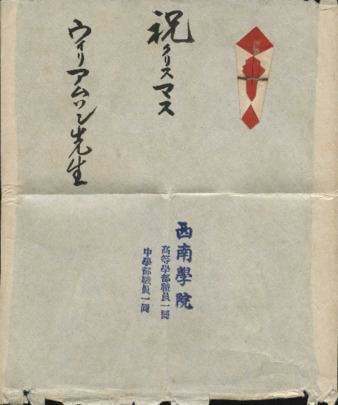 祝クリスマス
ウィリアムソン先生
西南學院
高等學部職員一同
中學部職員一同